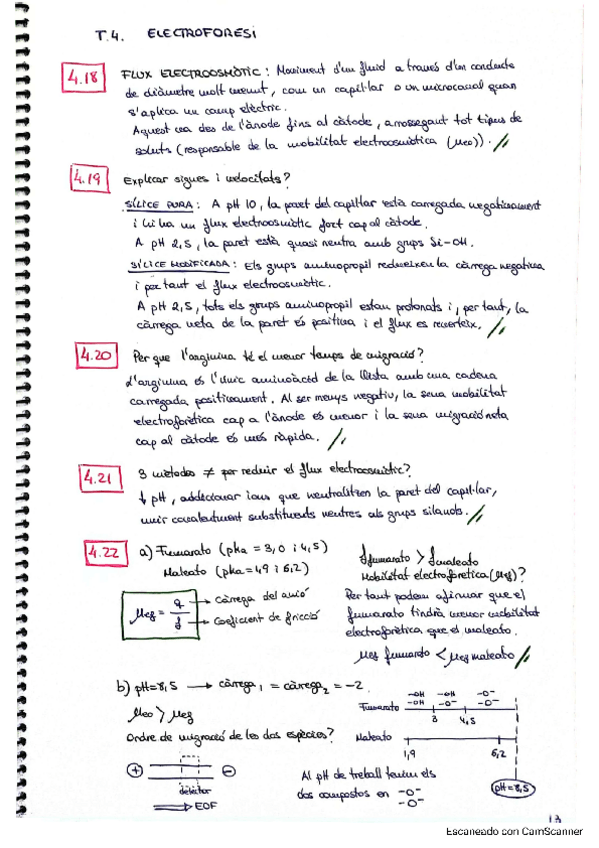 T.4. ELECTROFORESI
4.18 FLUX ELECTROOSMÒTIC: Moviment d'un fluid a través d'un conducte
de diàmetre molt menut, com un capil·lar o un microcanal quan
s'aplica un camp elèctric.
Aquest va des de l'ànode fins al càtode, arrossegant tot tipus de
soluts (responsable de la mobilitat electroosmòtica (μeo)).
4.19 Explicar signes i velocitats?
SÍLICE PURA: A pH 10, la paret del capil·lar està carregada negativament
i hi ha un flux electroosmòtic fort cap al càtode.
A pH 2,5, la paret està quasi neutra amb grups Si-OH.
SÍLICE MODIFICADA: Els grups aminopropil redueixen la càrrega negativa
i per tant el flux electroosmòtic.
A pH 2,5, tots els grups aminopropil estan protonats i, per tant, la
càrrega neta de la paret és positiva i el flux es reverteix.
4.20 Per que l'arginina té el menor temps de migració?
L'arginina és l'únic aminoàcid de la llista amb una cadena
carregada positivament. Al ser menys negatiu, la seua mobilitat
electroforètica cap a l'ànode és menor i la seua migració neta
cap al càtode és més ràpida.
4.21 3 mètodes ≠ per reduir el flux electroosmòtic?
↓ pH, addicionar ions que neutralitzen la paret del capil·lar,
unir covalentment substituents neutres als grups silanols.
4.22 a) Fumarato (pka = 3,0 i 4,5)
Maleato (pka = 1,9 i 6,2)
μef = q/f
→ Càrrega del anió
→ Coeficient de fricció
f fumarato > f maleato
Mobilitat electroforètica (μef)?
Per tant podem afirmar que el
fumarato tindrà menor mobilitat
electroforètica que el maleato.
μef fumarato < μef maleato
b) pH=8,5 → càrrega₁ = càrrega₂ = -2
μeo > μef
Ordre de migració de les dos espècies?
+ -
detector
EOF
Fumarato -OH -OH -OH -O⁻ -O⁻ -O⁻
3 4,5
Maleato
1,9 6,2
pH=8,5
Al pH de treball tenim els
dos compostos en -O⁻ -O⁻
13
Escaneado con CamScanner